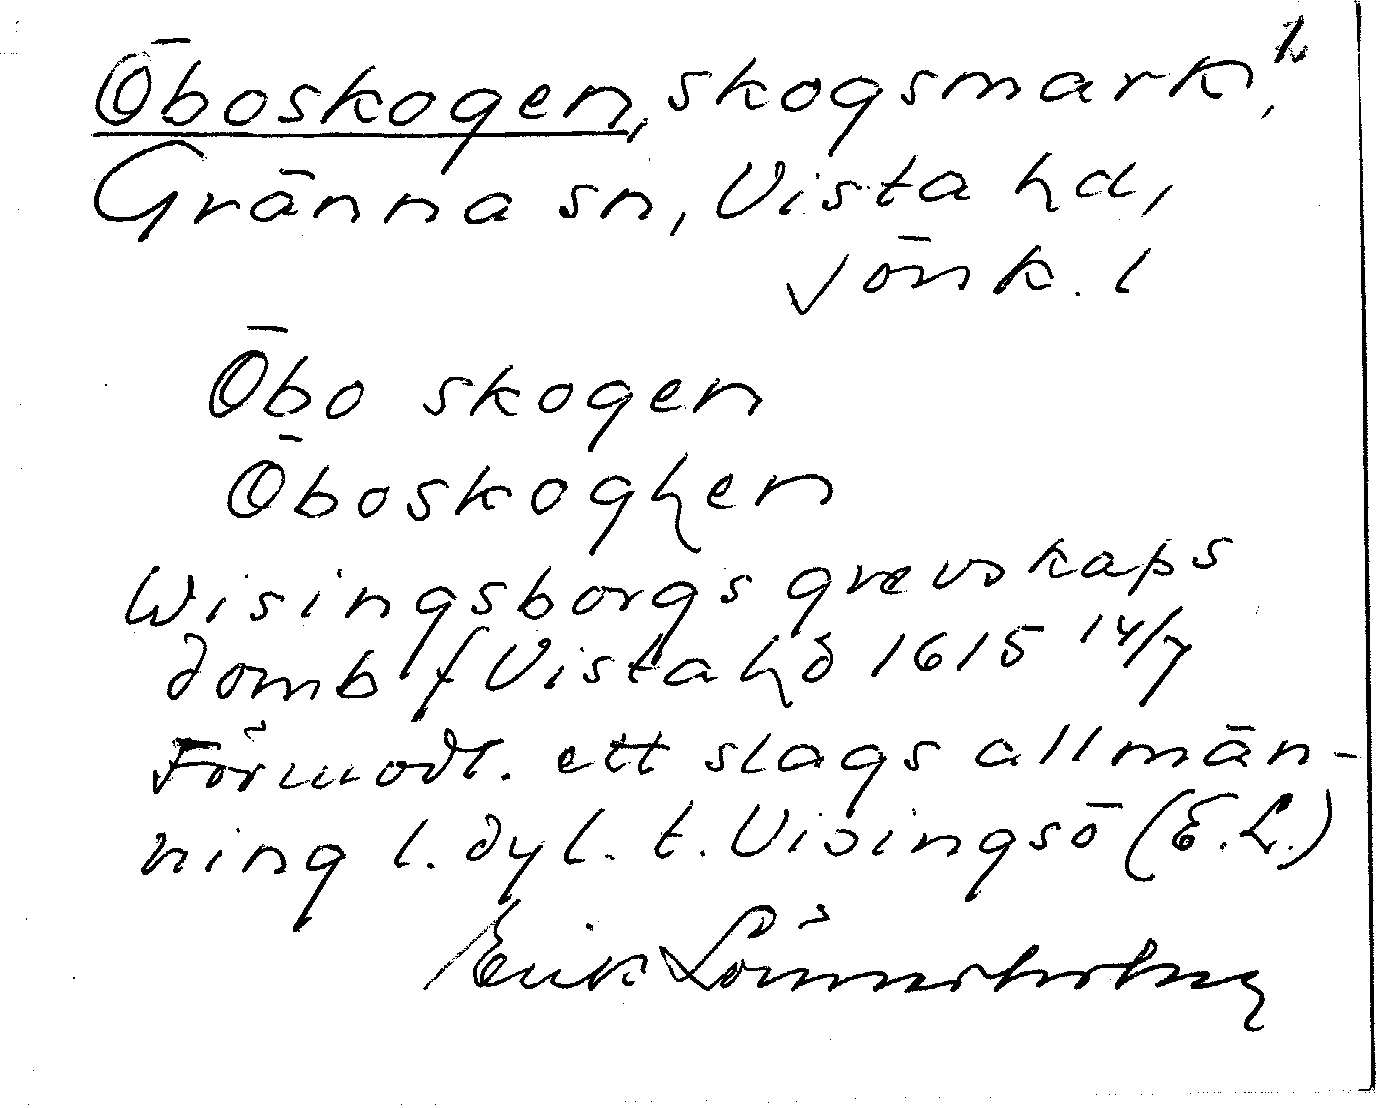 Öboskogen, skogsmark,
Gränna sn, Vista hd,
Jönk. l
Öbo skogen
Öboskoghen
Wisingsborgs grevskaps
domb f Vista hd 1615 14/7
Förmodl. ett slags allmän-
ning l. dyl. t. Visingsö (E.L.)
Erik Lönnerholm